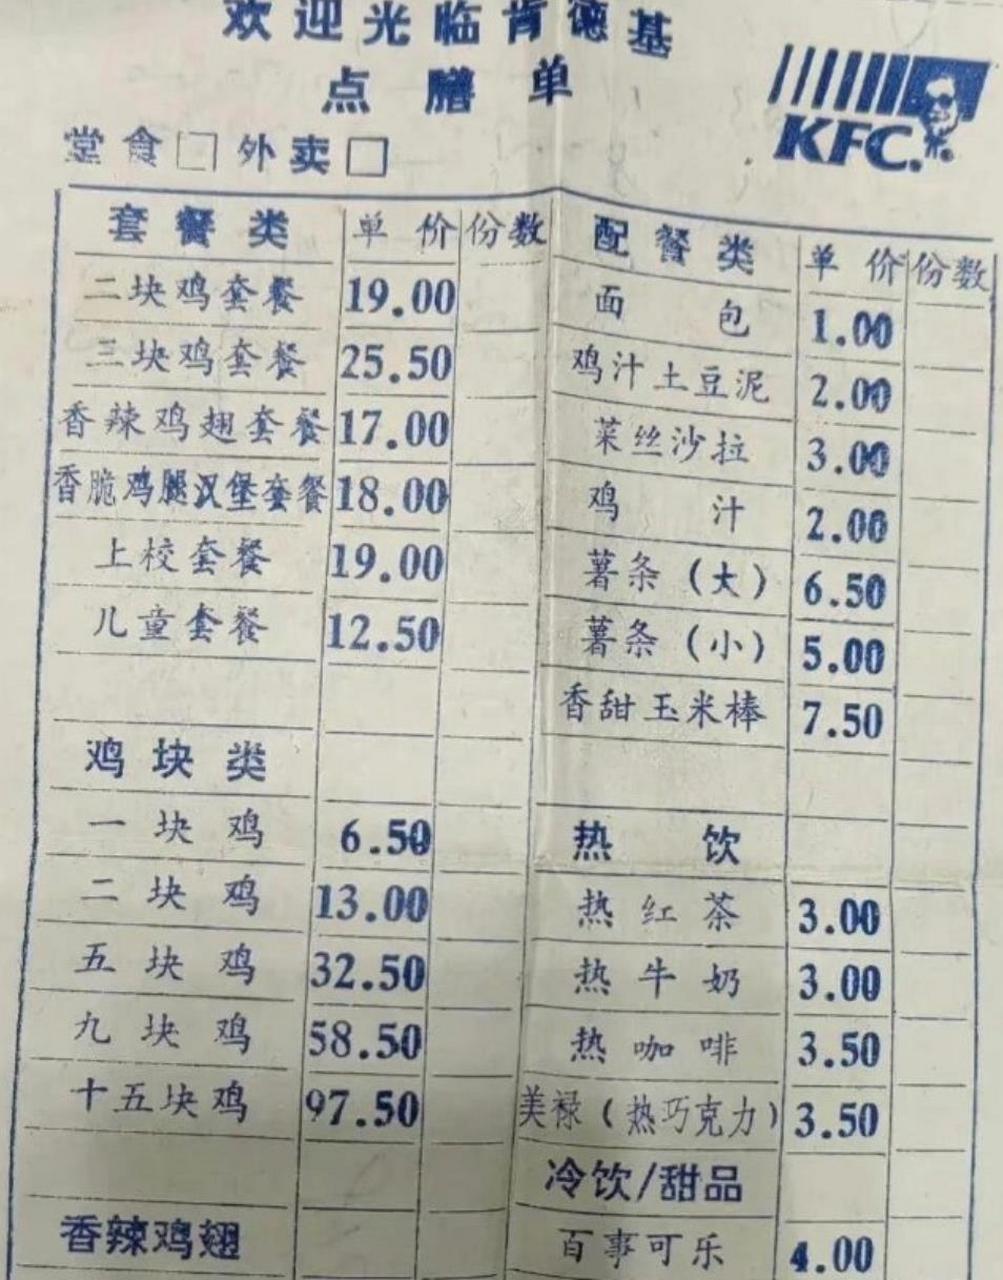 欢迎光临肯德基
点膳单
KFC.
堂食□ 外卖□
套餐类 单价 份数
二块鸡套餐 19.00
三块鸡套餐 25.50
香辣鸡翅套餐 17.00
香脆鸡腿汉堡套餐 18.00
上校套餐 19.00
儿童套餐 12.50
鸡块类
一块鸡 6.50
二块鸡 13.00
五块鸡 32.50
九块鸡 58.50
十五块鸡 97.50
香辣鸡翅
配餐类 单价 份数
面包 1.00
鸡汁土豆泥 2.00
菜丝沙拉 3.00
鸡汁 2.00
薯条(大) 6.50
薯条(小) 5.00
香甜玉米棒 7.50
热饮
热红茶 3.00
热牛奶 3.00
热咖啡 3.50
美禄(热巧克力) 3.50
冷饮/甜品
百事可乐 4.00